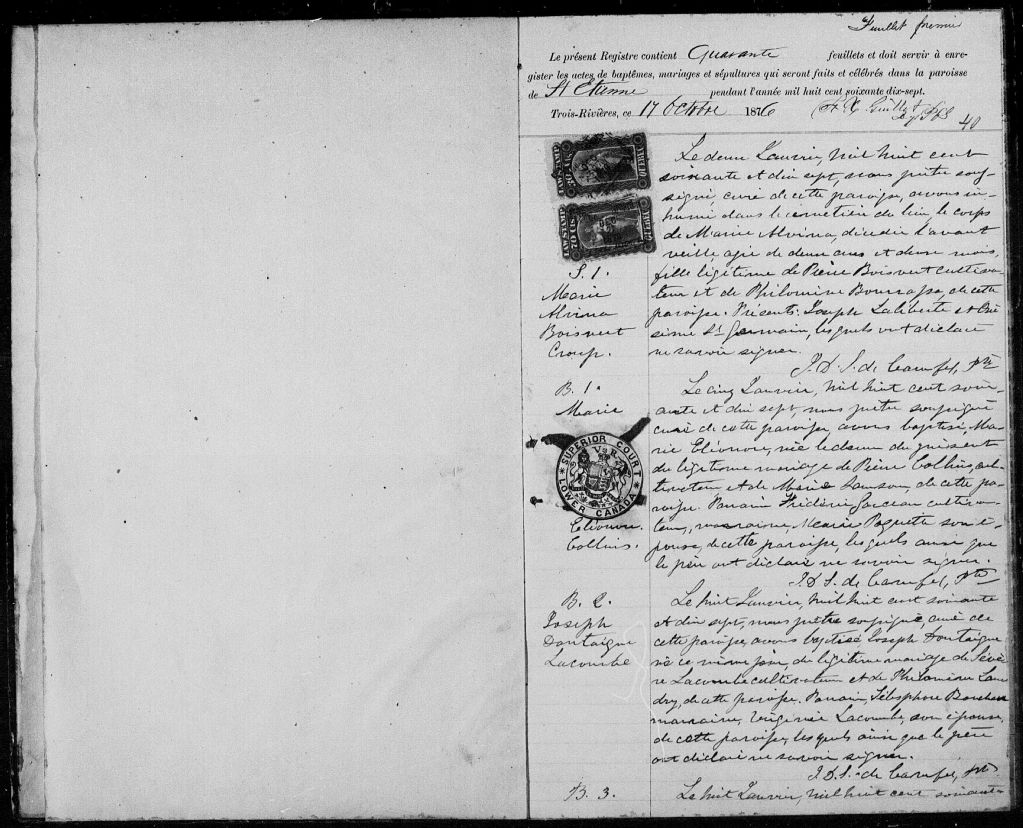 Feuillet premier
Le présent Registre contient Quarante feuillets et doit servir à enre-
gister les actes de baptêmes, mariages et sépultures qui seront faits et célébrés dans la paroisse
de St Etienne pendant l'année mil huit cent soixante dix-sept.
Trois-Rivières, ce 17 Octobre 1876
40
LAW STAMP
QUEBEC
LAW STAMP
QUEBEC
S. 1.
Marie
Alvina
Boisvert
Croup.
Le deux Janvier, mil huit cent
soixante et dix sept, nous prêtre sous-
signé, curé de cette paroisse, avons in-
humé dans le cimetière du lieu, le corps
de Marie Alvina, décédée l'avant
veille agée de deux ans et deux mois,
fille légitime de Pierre Boisvert cultiva-
teur et de Philomène Bourassa, de cette
paroisse. Présents: Joseph Laliberté et
St Germain, lesquels ont déclaré
ne savoir signer.
J. D. S. de Carufel, Ptre
B. 1.
Marie
SUPERIOR COURT
LOWER CANADA
V R
Eléonore.
Collins.
Le cinq Janvier, mil huit cent soix-
ante et dix sept, nous prêtre soussigné
curé de cette paroisse, avons baptisé, Ma-
rie Eléonore, née le du présent
du légitime mariage de Pierre Collins, cul-
tivateur et de Marie Samson, de cette pa-
roisse. Parrain Frédéric Garceau cultiva-
teur, marraine, Marie Paquette son é-
pouse, de cette paroisse, lesquels ainsi que
le père ont déclaré ne savoir signer.
J. D. S. de Carufel, Ptre
B. 2.
Joseph
Dontaigne
Lacombe
Le huit Janvier, mil huit cent soixante
et dix sept, nous prêtre soussigné, curé de
cette paroisse, avons baptisé Joseph Dontaigne
né ce même jour, du légitime mariage de Sévè-
re Lacombe cultivateur et de Philomène Lan-
dry, de cette paroisse. Parrain, Télesphore
marraine, Virginie Lacombe, son épouse,
de cette paroisse, lesquels ainsi que le père
ont déclaré ne savoir signer.
J. D. S. de Carufel, Ptre
B. 3.
Le huit Janvier, mil huit cent soixante